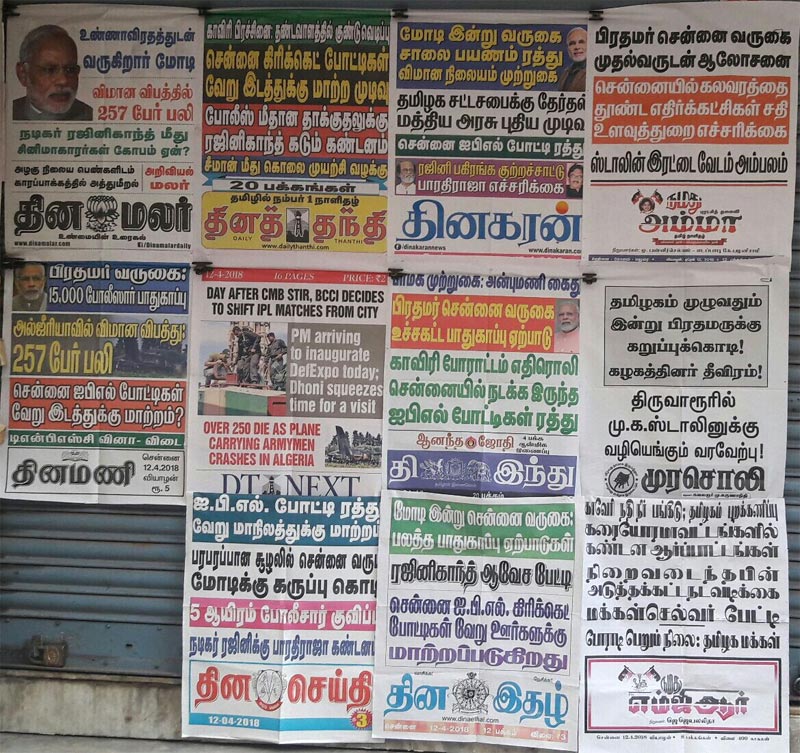 உண்ணாவிரதத்துடன்
வருகிறார் மோடி
விமான விபத்தில்
257 பேர் பலி
நடிகர் ரஜினிகாந்த் மீது
சினிமாகாரர்கள் கோபம் ஏன்?
அழகு நிலைய பெண்களிடம்
காரப்பாக்கத்தில் அத்துமீறல்
அறிவியல்
மலர்
தின மலர்
உண்மையின் உரைகல்
www.dinamalar.com
/Dinamalardaily
காவிரி பிரச்சினை: தண்டவாளத்தில் குண்டு வெடிப்பு
சென்னை கிரிக்கெட் போட்டிகள்
வேறு இடத்துக்கு மாற்ற முடிவு
போலீஸ் மீதான தாக்குதலுக்கு
ரஜினிகாந்த் கடும் கண்டனம்
சீமான் மீது கொலை முயற்சி வழக்கு
20 பக்கங்கள்
தமிழில் நம்பர் 1 நாளிதழ்
தினத் தந்தி
DAILY THANTHI
www.dailythanthi.com
மோடி இன்று வருகை
சாலை பயணம் ரத்து
விமான நிலையம் முற்றுகை
தமிழக சட்டசபைக்கு தேர்தல்
மத்திய அரசு புதிய முடிவு
சென்னை ஐபிஎல் போட்டி ரத்து
ரஜினி பகிரங்க குற்றச்சாட்டு
பாரதிராஜா எச்சரிக்கை
தினகரன்
/dinakarannews
www.dinakaran.com
பிரதமர் சென்னை வருகை
முதல்வருடன் ஆலோசனை
சென்னையில் கலவரத்தை
தூண்ட எதிர்க்கட்சிகள் சதி
உளவுத்துறை எச்சரிக்கை
ஸ்டாலின் இரட்டை வேடம் அம்பலம்
நமது
புரட்சித் தலைவி
அம்மா
பிரதமர் வருகை:
15,000 போலீஸார் பாதுகாப்பு
அல்ஜீரியாவில் விமான விபத்து:
257 பேர் பலி
சென்னை ஐபிஎல் போட்டிகள்
வேறு இடத்துக்கு மாற்றம்?
டிஎன்பிஎஸ்சி வினா - விடை
தினமணி
சென்னை
12.4.2018
வியாழன்
ரூ. 5
12-4-2018 16 PAGES PRICE: ₹2
DAY AFTER CMB STIR, BCCI DECIDES
TO SHIFT IPL MATCHES FROM CITY
PM arriving
to inaugurate
DefExpo today;
Dhoni squeezes
time for a visit
OVER 250 DIE AS PLANE
CARRYING ARMYMEN
CRASHES IN ALGERIA
DT NEXT
பாமக முற்றுகை: அன்புமணி கைது
பிரதமர் சென்னை வருகை
உச்சகட்ட பாதுகாப்பு ஏற்பாடு
காவிரி போராட்டம் எதிரொலி
சென்னையில் நடக்க இருந்த
ஐபிஎல் போட்டிகள் ரத்து
ஆனந்த ஜோதி
4 பக்க
ஆன்மிக
இணைப்பு
தி இந்து
20 பக்கம்
தமிழகம் முழுவதும்
இன்று பிரதமருக்கு
கறுப்புக்கொடி!
கழகத்தினர் தீவிரம்!
திருவாரூரில்
மு.க.ஸ்டாலினுக்கு
வழியெங்கும் வரவேற்பு!
முரசொலி
ஐ.பி.எல். போட்டி ரத்து
வேறு மாநிலத்துக்கு மாற்றம்
பரபரப்பான சூழலில் சென்னை வரு
மோடிக்கு கருப்பு கொடி
5 ஆயிரம் போலீசார் குவிப்பு
நடிகர் ரஜினிக்கு பாரதிராஜா கண்டனம்
தின செய்தி
12-04-2018
3
மோடி இன்று சென்னை வருகை:
பலத்த பாதுகாப்பு ஏற்பாடுகள்
ரஜினிகாந்த் ஆவேச பேட்டி
சென்னை ஐ.பி.எல். கிரிக்கெட்
போட்டிகள் வேறு ஊர்களுக்கு
மாற்றப்படுகிறது
தின இதழ்
www.dinaethal.com
சென்னை 12-4-2018 12 பக்கம் விலை ₹3
காவேரி நதி நீர் பங்கீடு; தமிழகம் புறக்கணிப்பு
கரையோரமாவட்டங்களில்
கண்டன ஆர்ப்பாட்டங்கள்
நிறைவடைந்தபின்
அடுத்தகட்ட நடவடிக்கை
மக்கள்செல்வர் பேட்டி
போராடி பெறும் நிலை: தமிழக மக்கள்
நமது
எம்ஜிஆர்
நிறுவனர்: ஜெ.ஜெயலலிதா
சென்னை 12.4.2018 வியாழன்